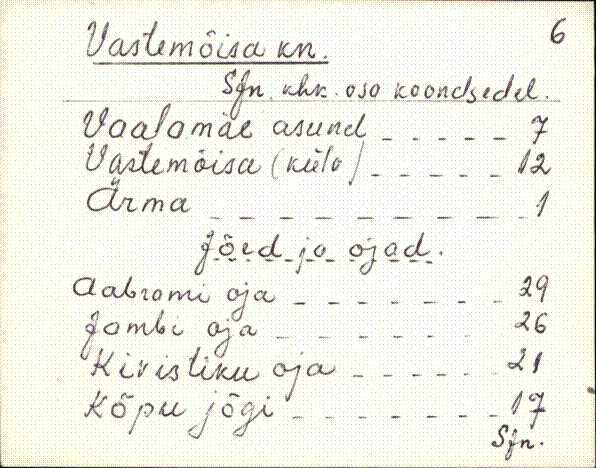 6
Vastemõisa kn.
Sfn. khk. osa koondsedel.
Vaalamäe asund _ _ _ _ _ 7
Vastemõisa (küla) _ _ _ _ _ 12
Ärma _ _ _ _ _ _ _ _ _ 1
Jõed ja ojad.
Aabrami oja _ _ _ _ _ _ 29
Jambi oja _ _ _ _ _ _ 26
Kivistiku oja _ _ _ _ 21
Kõpu jõgi _ _ _ _ _ _ 17
Sfn.